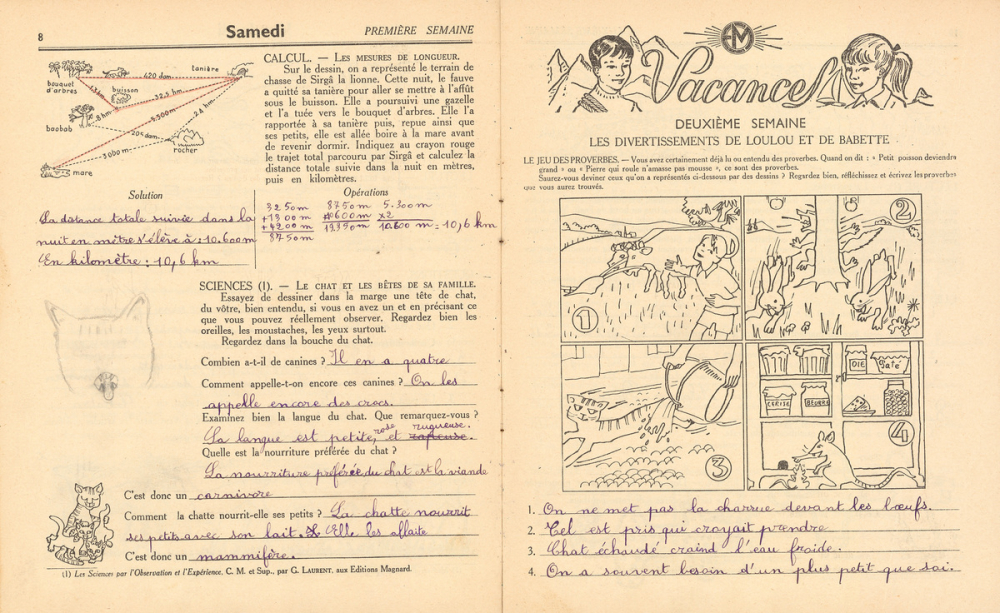 8
Samedi
PREMIÈRE SEMAINE
bouquet
d'arbres
420 dam
tanière
buisson
32,5 hm
8 hm
5.300m
baobab
205 dam
rocher
3.000 m
mare
CALCUL. — LES MESURES DE LONGUEUR.
Sur le dessin, on a représenté le terrain de
chasse de Sirgâ la lionne. Cette nuit, le fauve
a quitté sa tanière pour aller se mettre à l'affût
sous le buisson. Elle a poursuivi une gazelle
et l'a tuée vers le bouquet d'arbres. Elle l'a
rapportée à sa tanière puis, repue ainsi que
ses petits, elle est allée boire à la mare avant
de revenir dormir. Indiquez au crayon rouge
le trajet total parcouru par Sirgâ et calculez la
distance totale suivie dans la nuit en mètres,
puis en kilomètres.
Solution
La distance totale suivie dans la
nuit en mètre s'élève à : 10.600m
En kilomètre : 10,6 km
Opérations
3250m 8750m 5.300m
+1300m +10600m x2
+4200m 19350m 10600m = 10,6 km
8750m
SCIENCES (1). — LE CHAT ET LES BÊTES DE SA FAMILLE.
Essayez de dessiner dans la marge une tête de chat,
du vôtre, bien entendu, si vous en avez un et en précisant ce
que vous pouvez réellement observer. Regardez bien les
oreilles, les moustaches, les yeux surtout.
Regardez dans la bouche du chat.
Combien a-t-il de canines ? Il en a quatre
Comment appelle-t-on encore ces canines ? On les
appelle encore des crocs.
Examinez bien la langue du chat. Que remarquez-vous ?
La langue est petite, rose et rugueuse.
Quelle est la nourriture préférée du chat ?
La nourriture préférée du chat est la viande
C'est donc un carnivore
Comment la chatte nourrit-elle ses petits ? La chatte nourrit
ses petits avec son lait. Elle les allaite
C'est donc un mammifère.
(1) Les Sciences par l'Observation et l'Expérience, C. M. et Sup., par G. LAURENT. aux Editions Magnard.
EM
Vacances
DEUXIÈME SEMAINE
LES DIVERTISSEMENTS DE LOULOU ET DE BABETTE
LE JEU DES PROVERBES. — Vous avez certainement déjà lu ou entendu des proverbes. Quand on dit : « Petit poisson deviendra
grand » ou « Pierre qui roule n'amasse pas mousse », ce sont des proverbes.
Saurez-vous deviner ceux qu'on a représentés ci-dessous par des dessins ? Regardez bien, réfléchissez et écrivez les proverbes
que vous aurez trouvés.
1
2
3
4
OIE
Paté
CERISE
BEURRE
1. On ne met pas la charrue devant les bœufs.
2. Tel est pris qui croyait prendre
3. Chat échaudé craind l'eau froide.
4. On a souvent besoin d'un plus petit que soi.